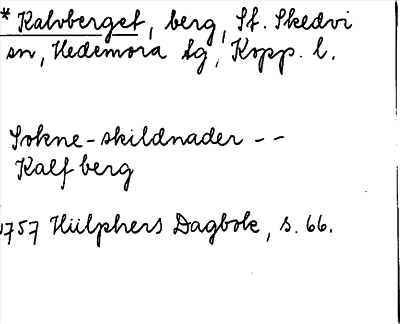 * Kalvberget, berg, St. Skedvi
sn, Hedemora tg, Kopp. l.
Sokne-skildnader --
Kalf berg
1757 Hülphers Dagbok, s. 66.